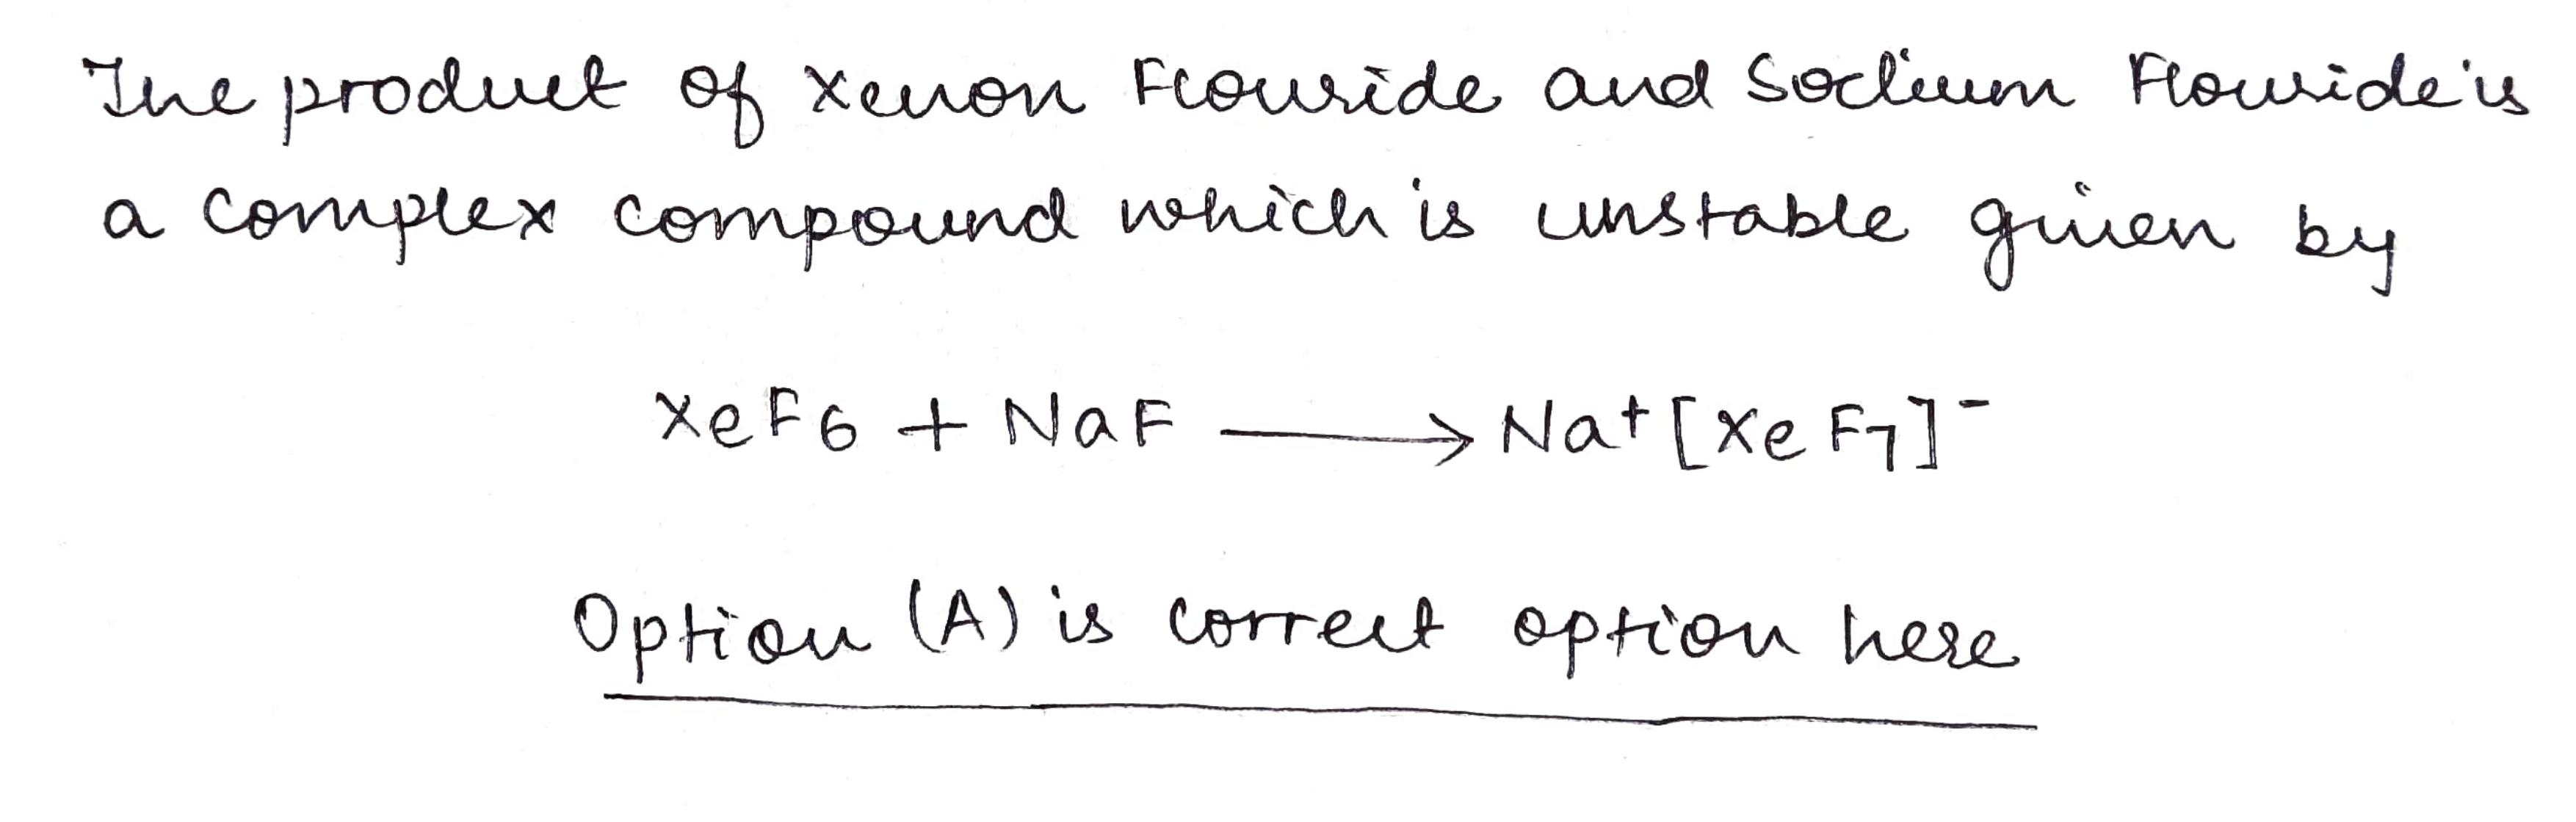 The product of Xenon Flouride and Sodium Flouride is
a complex compound which is unstable given by
XeF6 + NaF → Na⁺[XeF₇]⁻
Option (A) is correct option here